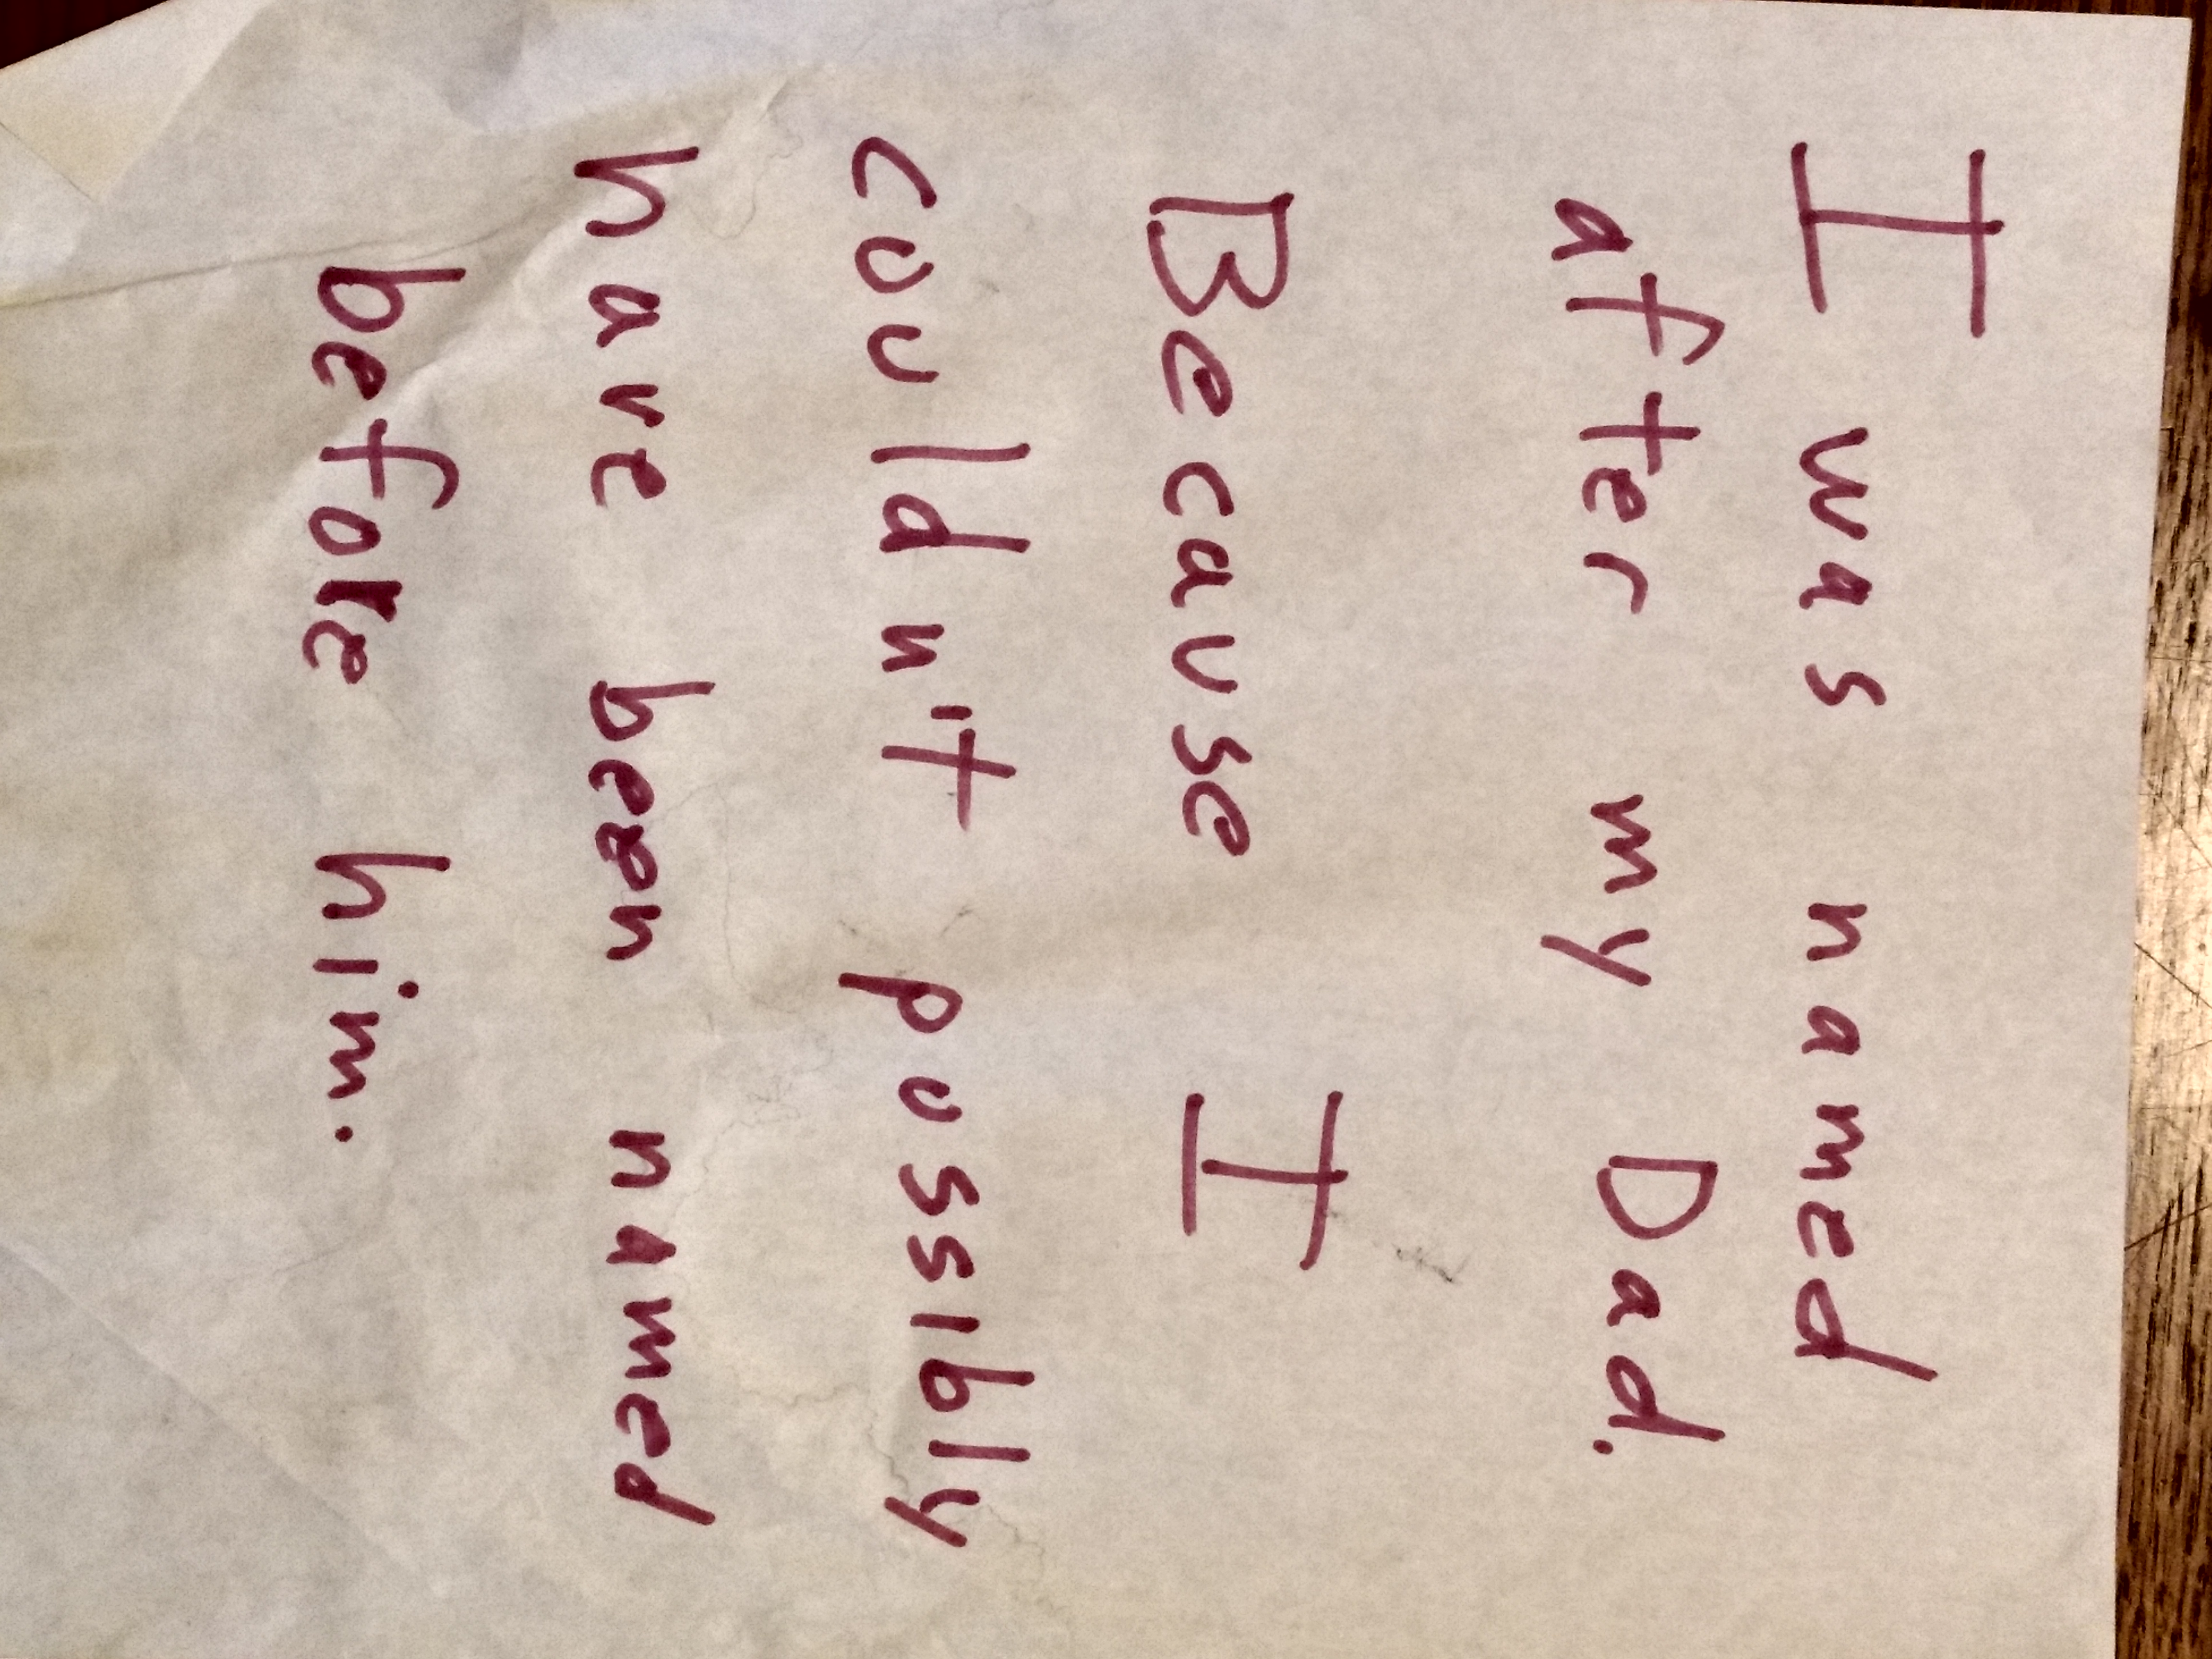 I was named
after my Dad.
Because I
could n't possibly
have been named
before him.